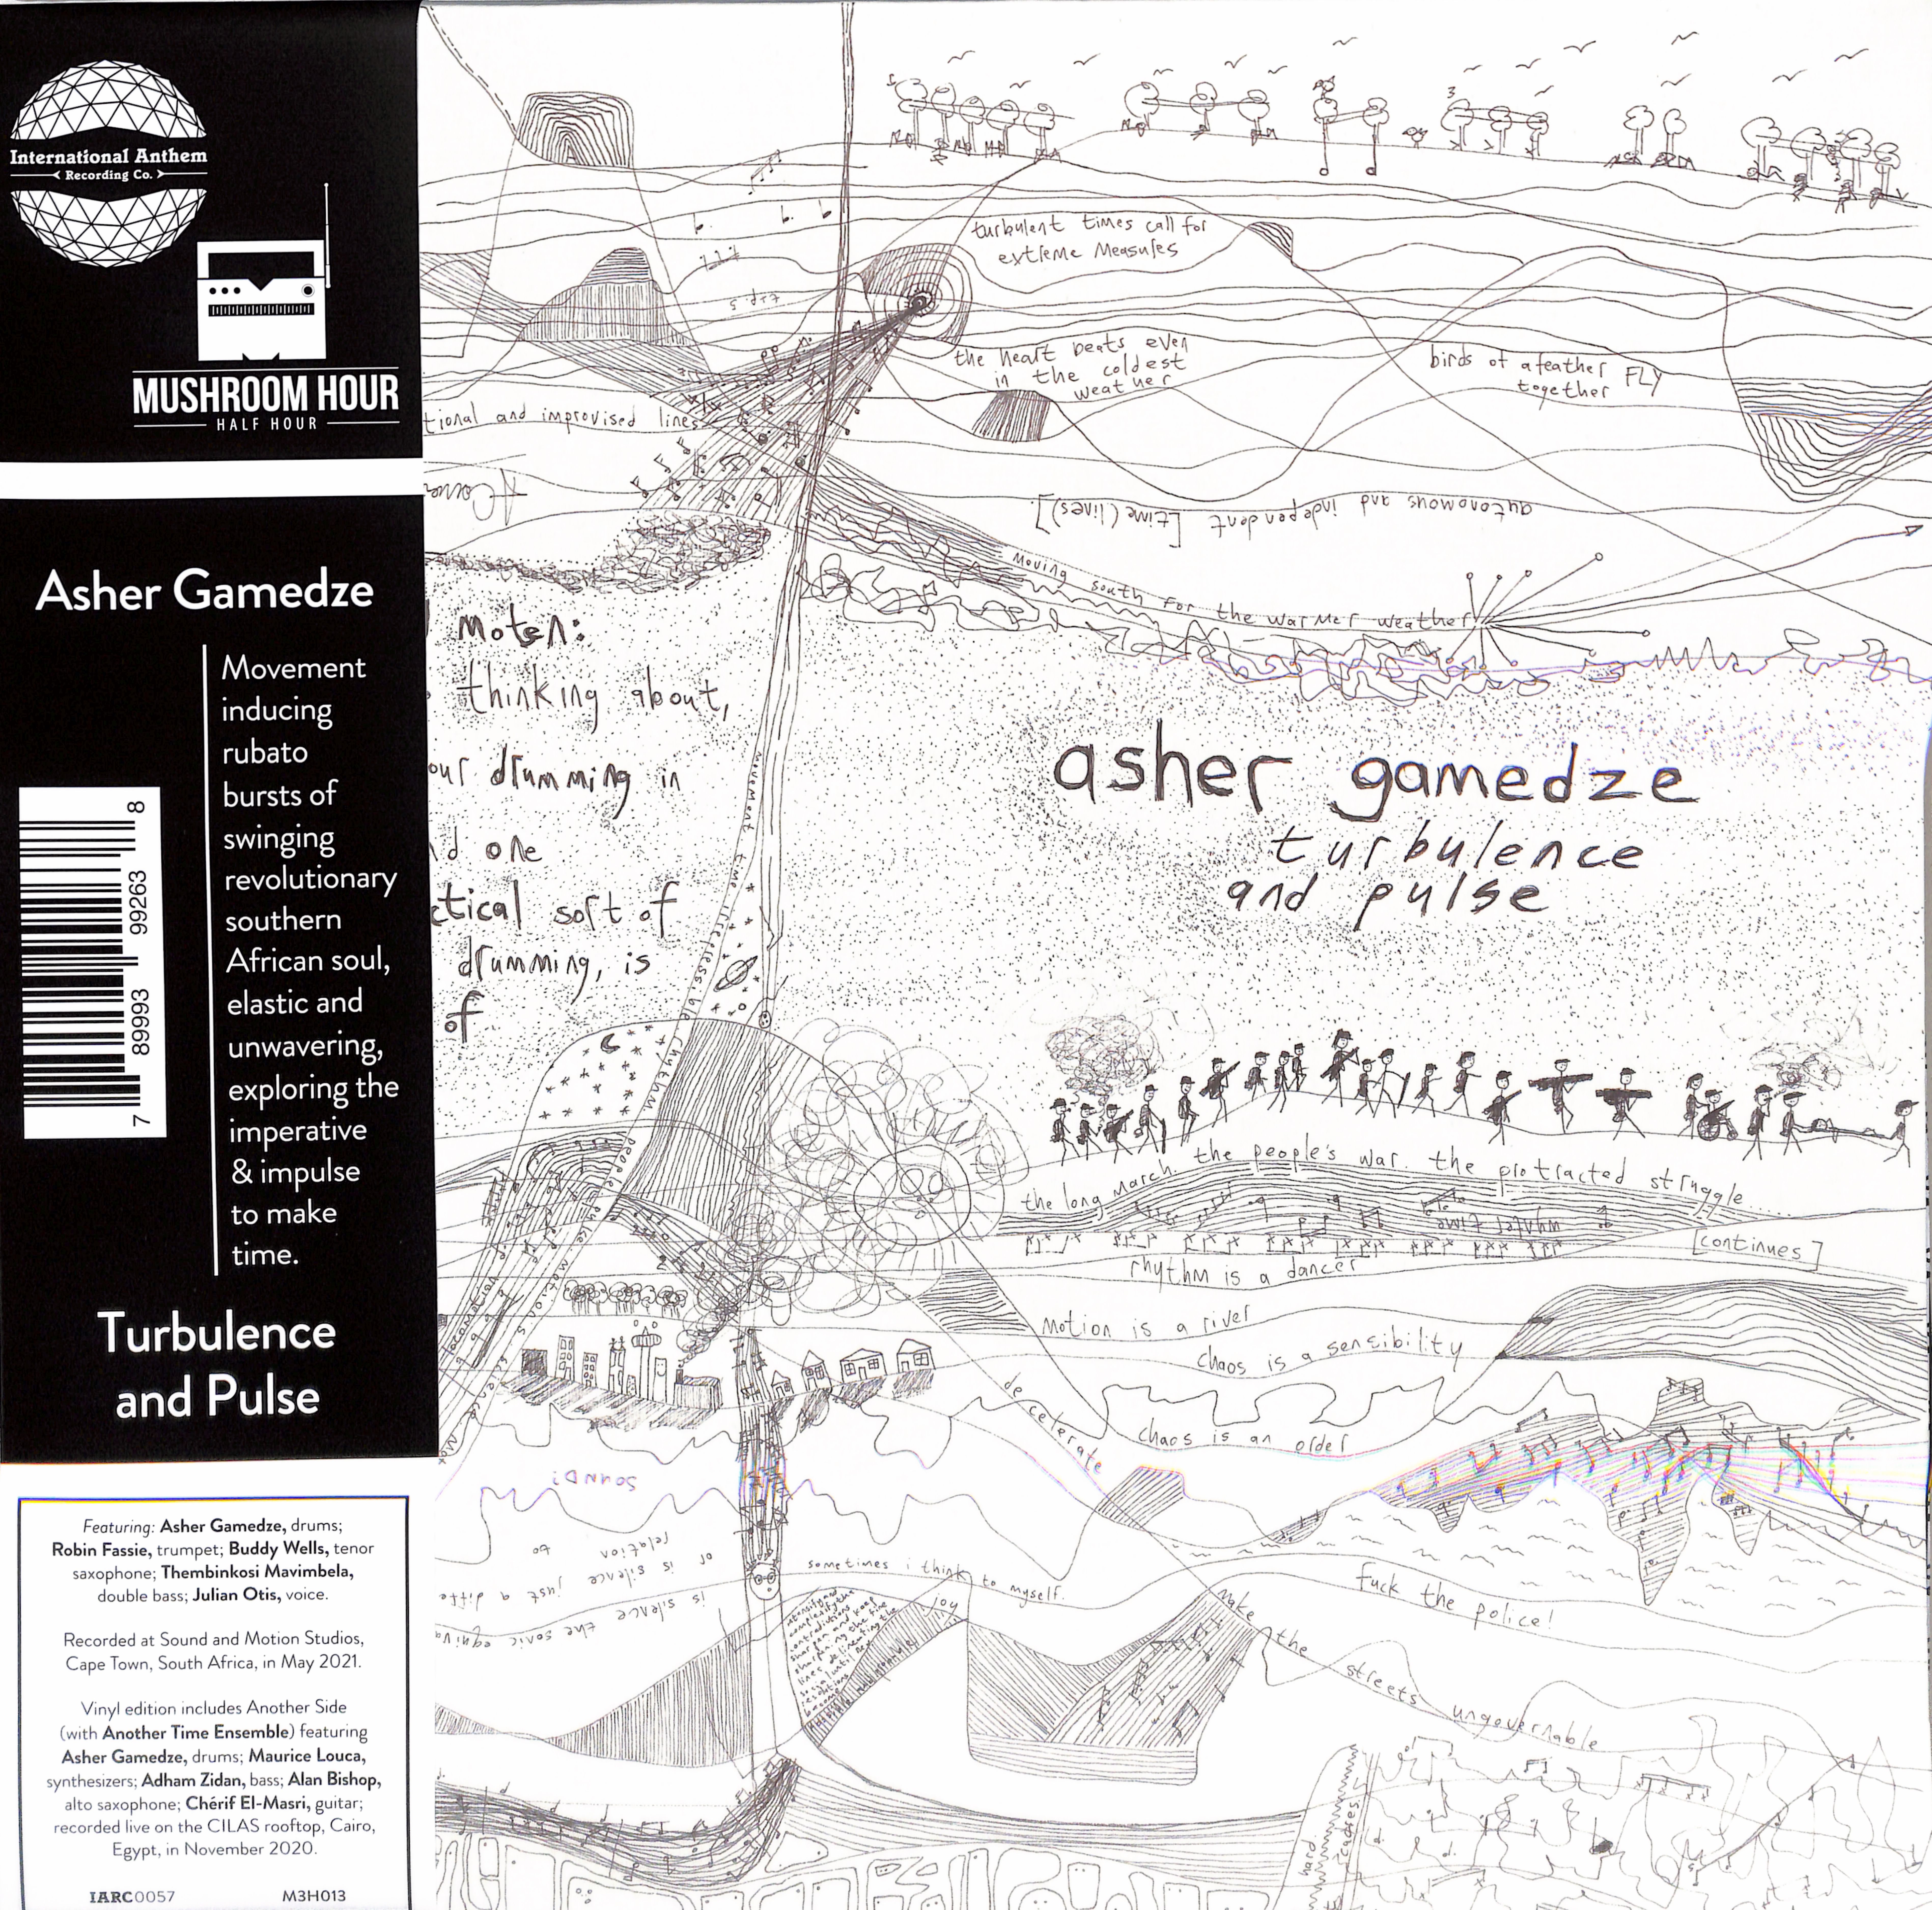 International Anthem
Recording Co.
MUSHROOM HOUR
HALF HOUR
Asher Gamedze
Movement
inducing
rubato
bursts of
swinging
revolutionary
southern
African soul,
elastic and
unwavering,
exploring the
imperative
& impulse
to make
time.
7 89993 99263 8
Turbulence
and Pulse
Featuring: Asher Gamedze, drums;
Robin Fassie, trumpet; Buddy Wells, tenor
saxophone; Thembinkosi Mavimbela,
double bass; Julian Otis, voice.
Recorded at Sound and Motion Studios,
Cape Town, South Africa, in May 2021.
Vinyl edition includes Another Side
(with Another Time Ensemble) featuring
Asher Gamedze, drums; Maurice Louca,
synthesizers; Adham Zidan, bass; Alan Bishop,
alto saxophone; Chérif El-Masri, guitar;
recorded live on the CILAS rooftop, Cairo,
Egypt, in November 2020.
IARC0057 M3H013
turbulent times call for
extreme measures
the heart beats even
in the coldest
weather
birds of a feather FLY
together
tional and improvised lines
autonomous and independent [time(lines)].
moving south for the warmer weather
moten:
thinking about,
our drumming in
d one
ctical sort of
drumming, is
of
movement time irreplessible rhythm
asher gamedze
turbulence
and pulse
the long march. the people's war. the protracted struggle......
whyler time
[continues]
rhythm is a dancer
motion is a river
chaos is a sensibility
decelerate
chaos is an order
SOUND?
is silence the sonic equiva
or is silence just a diffe
relation to
sometimes i think to myself.
joy
fuck the police!
make the streets ungovernable
hard